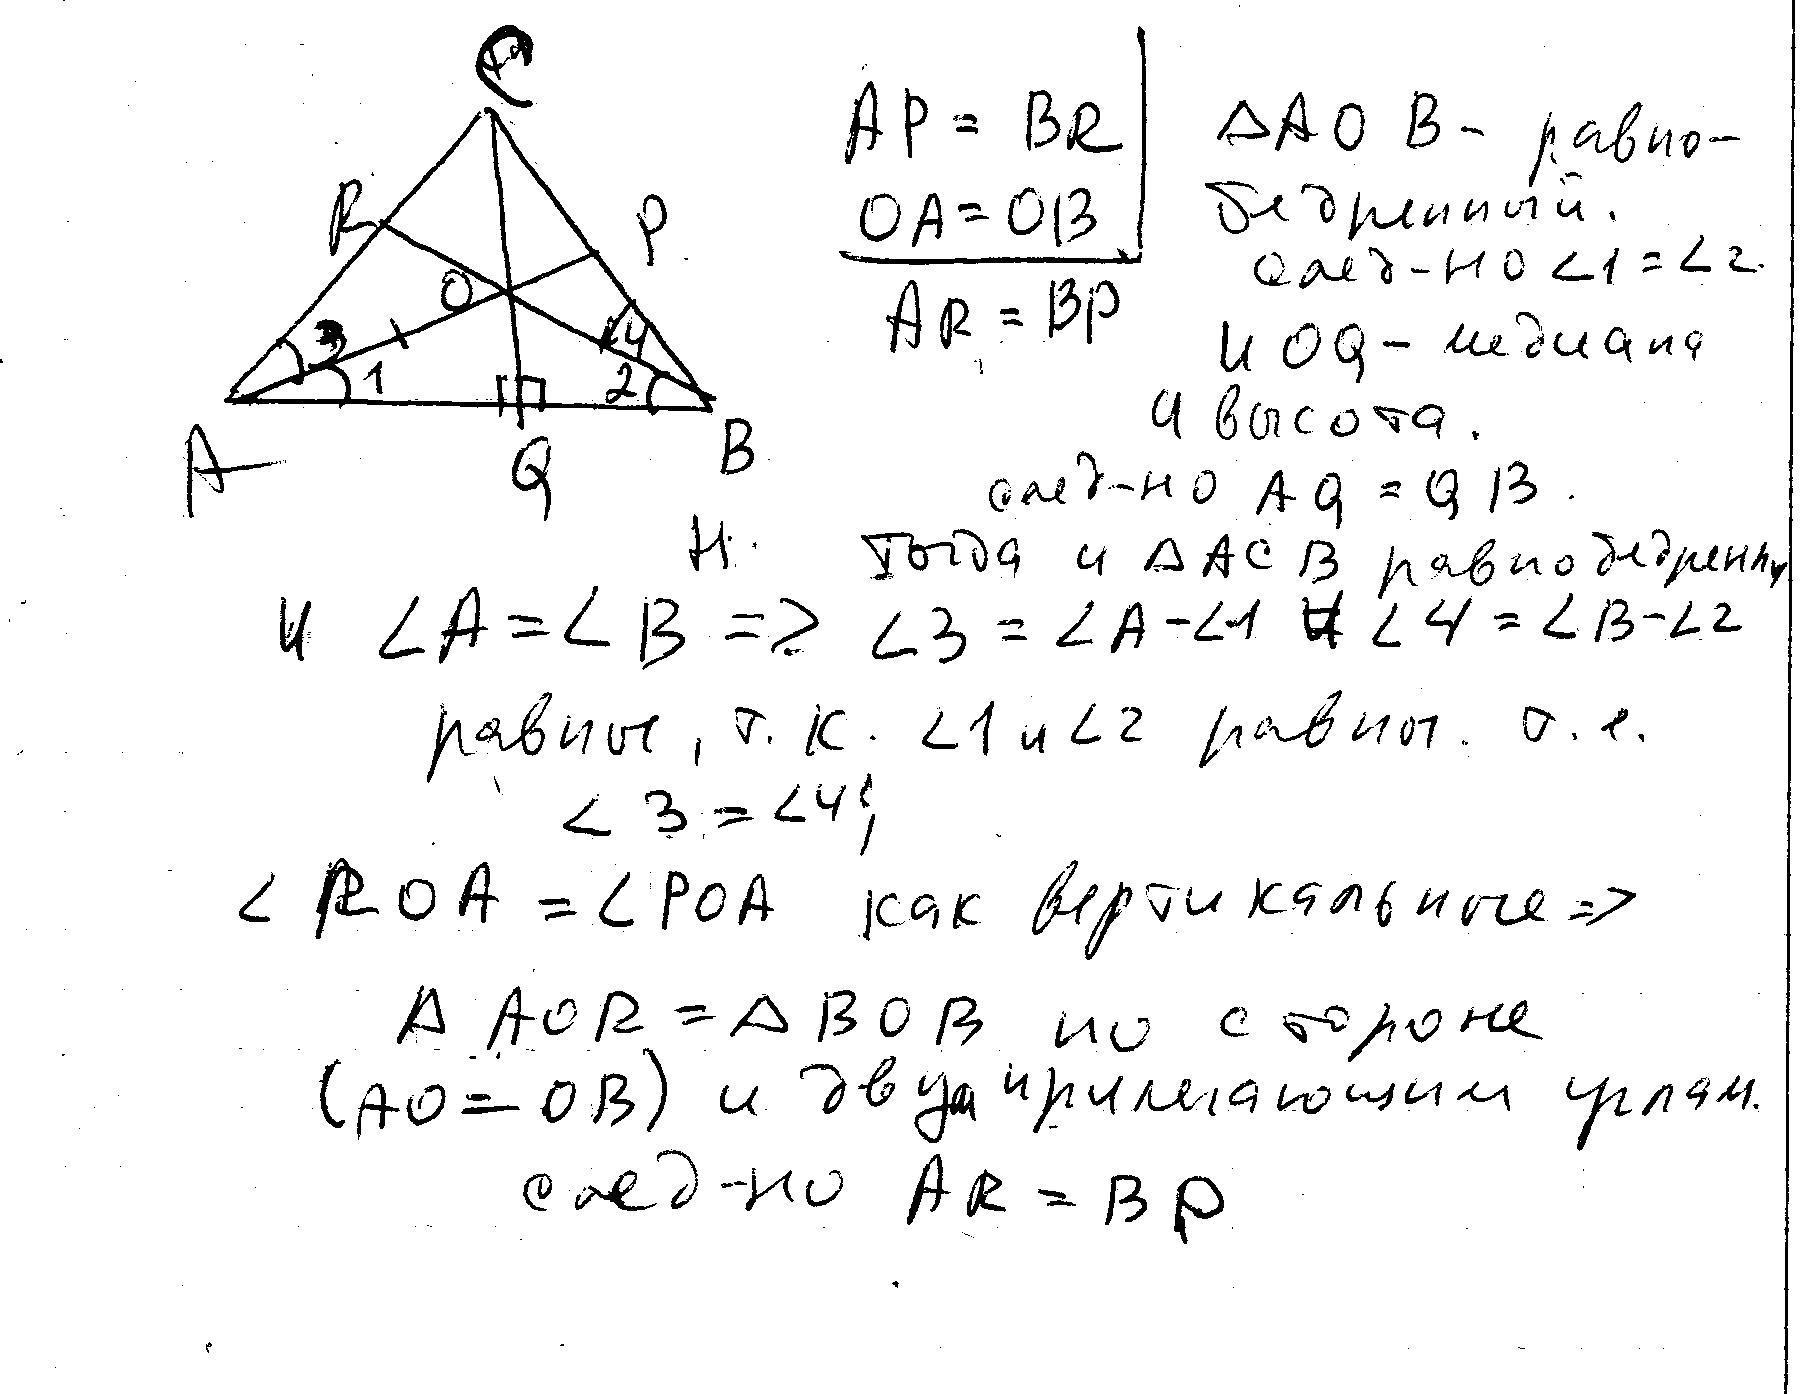 C
R
P
O
3
4
1
2
A
Q
B
AP = BR
OA = OB
AR = BP
△AOB - равно-
бедренный.
след-но ∠1 = ∠2.
и OQ - медиана
и высота.
след-но AQ = QB.
Н. Тогда и △ACB равнобедренны
и ∠A = ∠B => ∠3 = ∠A - ∠1 и ∠4 = ∠B - ∠2
равные, т.к. ∠1 и ∠2 равны. т.е.
∠3 = ∠4;
∠ROA = ∠POA как вертикальные =>
△AOR = △BOB по стороне
(AO = OB) и двум прилегающим углам.
след-но AR = BP